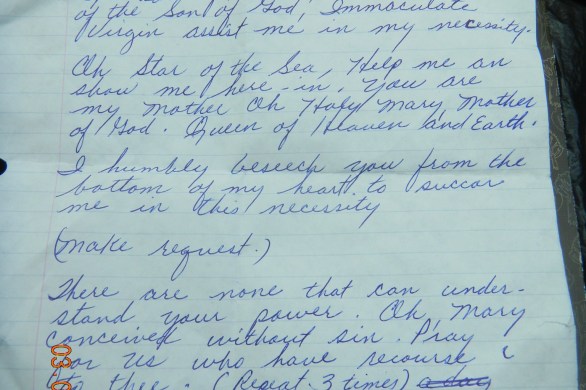 of the Son of God, Immaculate
Virgin assist me in my necessity.
Oh Star of the Sea, Help me an
show me here-in. You are
my mother Oh Holy Mary Mother
of God. Queen of Heaven and Earth.
I humbly beseech you from the
bottom of my heart to succor
me in this necessity
(make request.)
There are none that can under-
stand your power. Oh, Mary
conceived without sin. Pray
for us who have recourse
to thee. (Repeat 3 times)
03